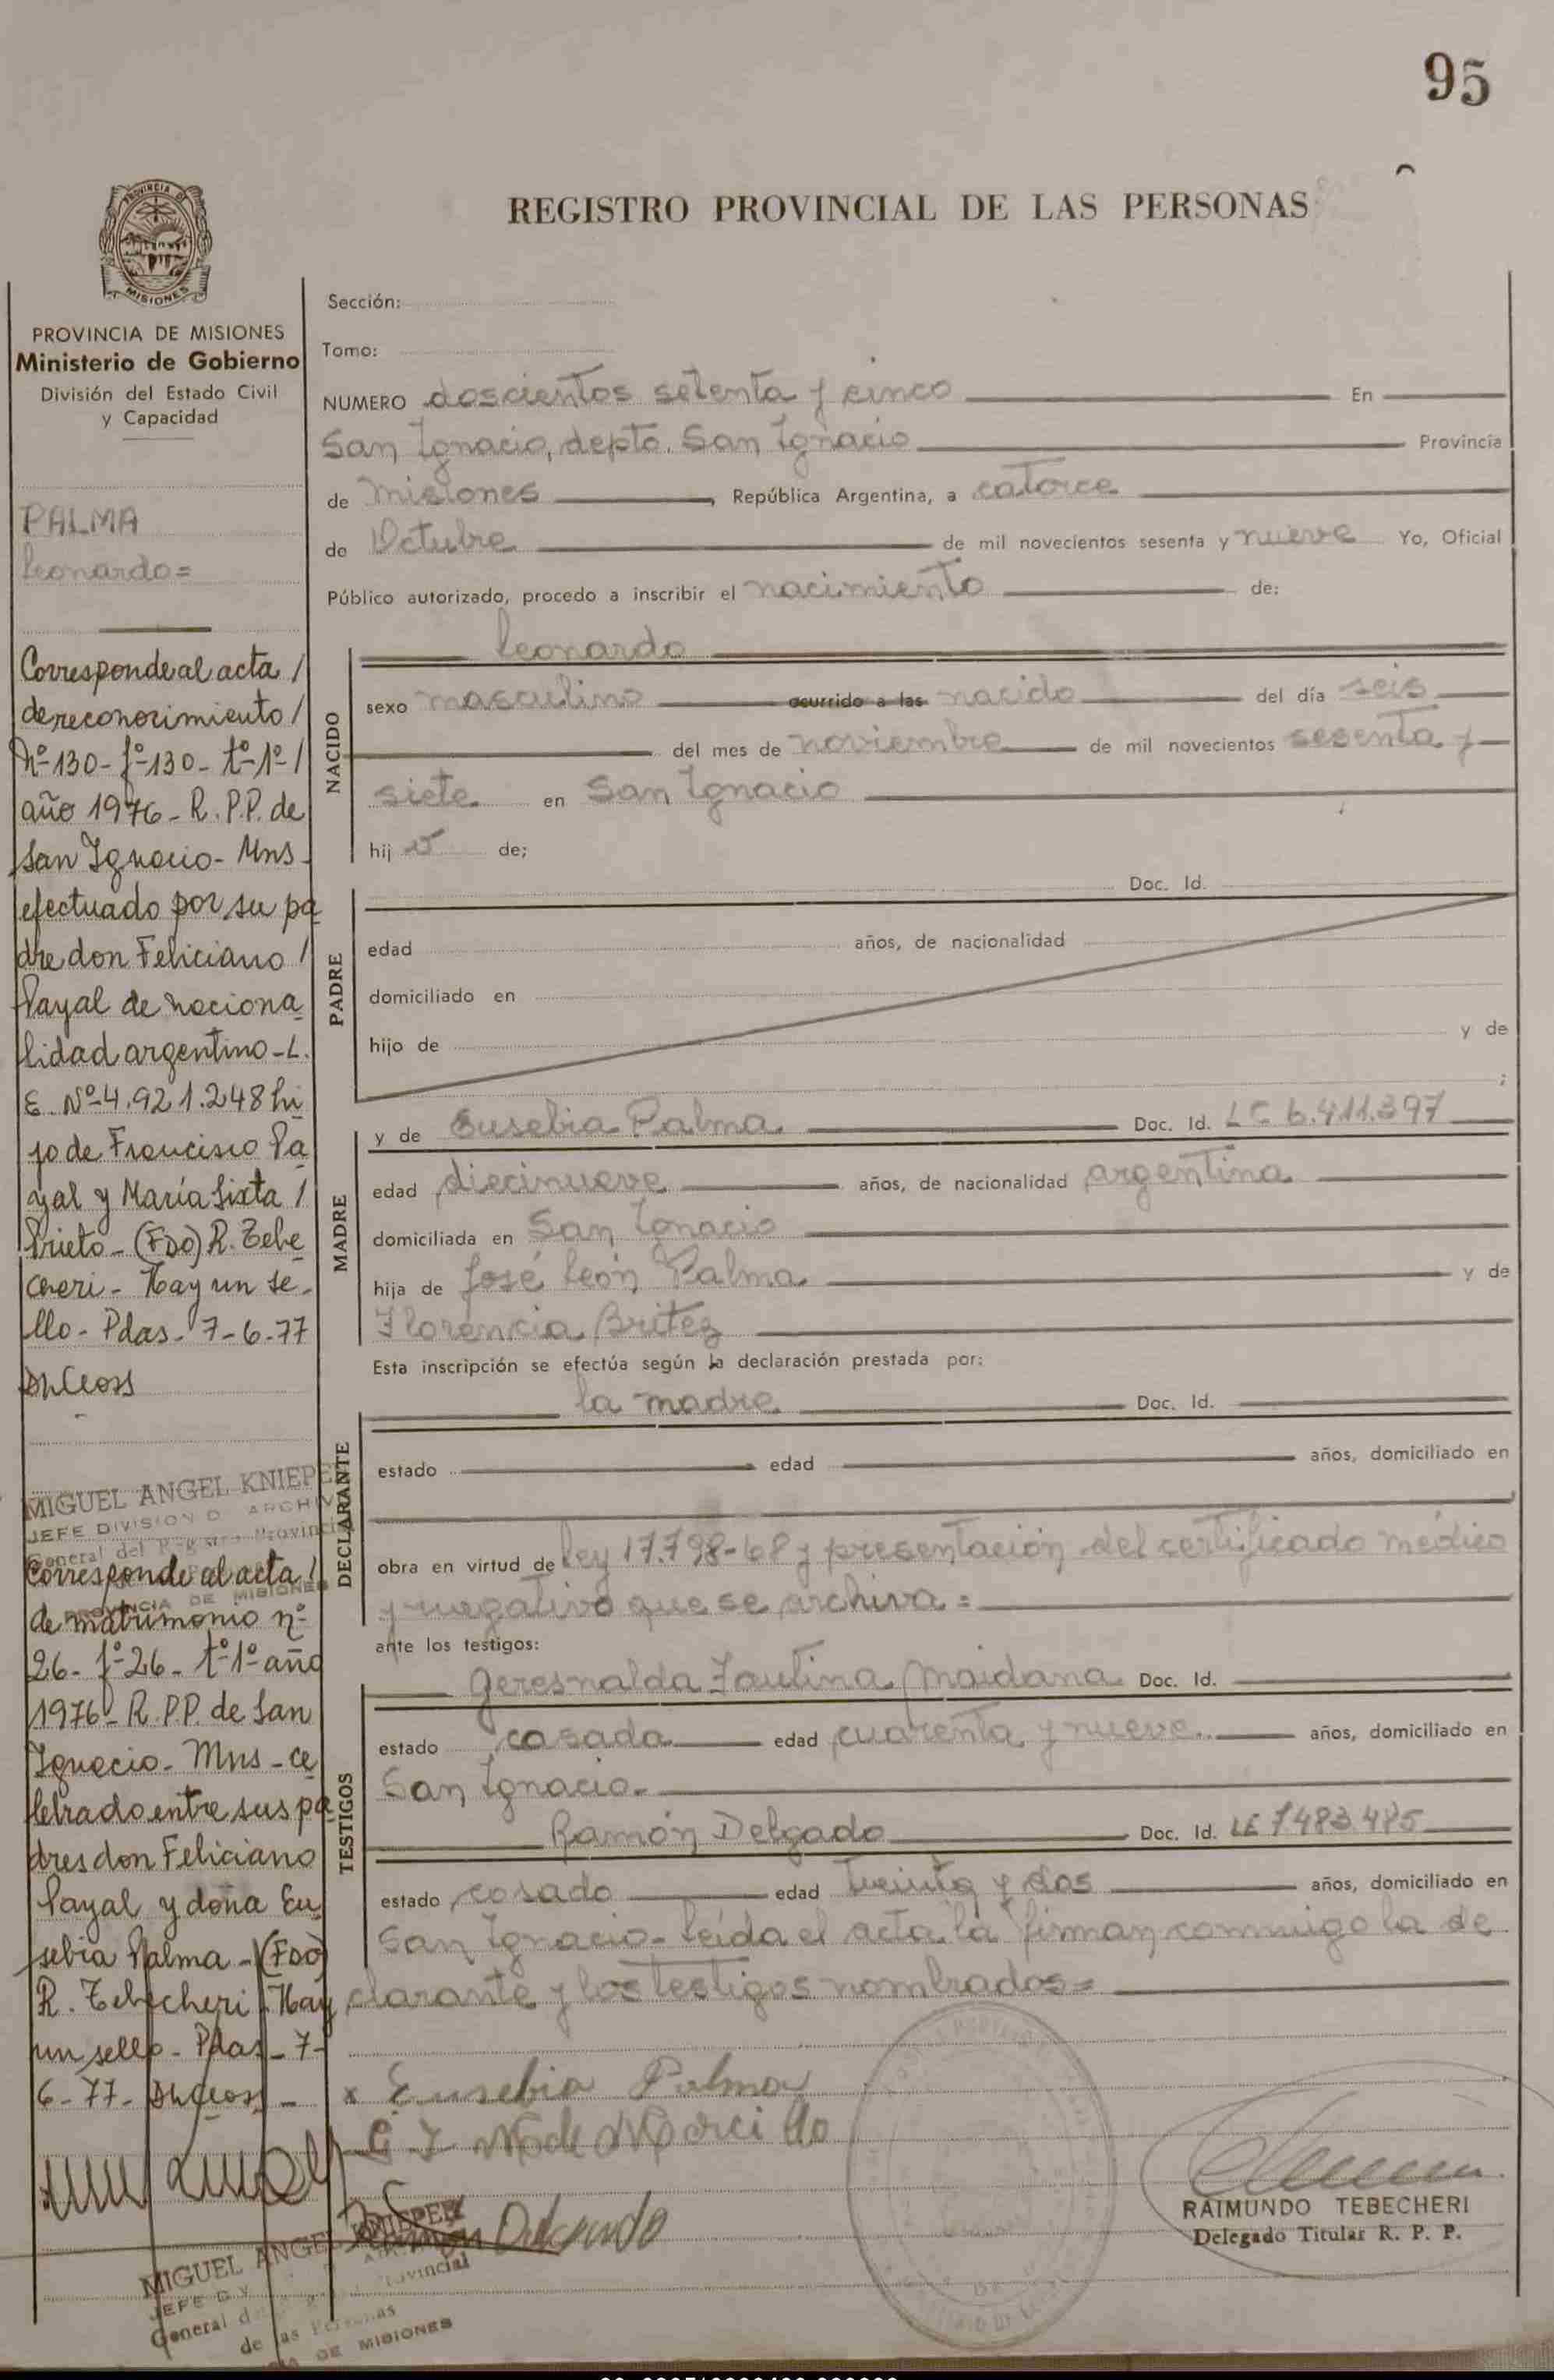 95
REGISTRO PROVINCIAL DE LAS PERSONAS
PROVINCIA DE
MISIONES
PROVINCIA DE MISIONES
Ministerio de Gobierno
División del Estado Civil
y Capacidad
PALMA
Leonardo=
Corresponde al acta /
de reconocimiento /
Nº 130 - fº 130 - tº 1º /
año 1976 - R. P.P. de
San Ignacio - Mns -
efectuado por su pa
dre don Feliciano /
Payal de naciona
lidad argentino - L.
E. Nº 4.921.248 hi
jo de Francisco Pa
yal y María Sixta /
Prieto - (FDO) R. Tebe
cheri - Hay un se-
llo - Pdas - 7-6-77
MIGUEL ANGEL KNIEPE
JEFE DIVISION D. ARCHIV
General del Registro Provincial
PROVINCIA DE MISIONES
Corresponde al acta /
de matrimonio nº
26 - fº 26 - tº 1º año
1976 - R. P.P. de San
Ignacio - Mns - ce
lebrado entre sus pa
dres don Feliciano
Payal y doña Eu
sebia Palma - (FDO)
R. Tebecheri - Hay
un sello - Pdas - 7-
6-77-
MIGUEL ANGEL KNIEPER
JEFE DIV
General del Provincial
de las Personas
DE MISIONES
Sección:
Tomo:
NUMERO doscientos setenta y cinco En
San Ignacio, depto. San Ignacio Provincia
de Misiones, República Argentina, a catorce
de Octubre de mil novecientos sesenta y nueve Yo, Oficial
Público autorizado, procedo a inscribir el nacimiento de:
NACIDO
Leonardo
sexo masculino ocurrido a las nacido del día seis
del mes de noviembre de mil novecientos sesenta y
siete en San Ignacio
hij o de;
PADRE
Doc. Id.
edad años, de nacionalidad
domiciliado en
hijo de y de
;
MADRE
y de Eusebia Palma Doc. Id. LC 6.411.397
edad diecinueve años, de nacionalidad argentina
domiciliada en San Ignacio
hija de José León Palma y de
Florencia Britez
Esta inscripción se efectúa según la declaración prestada por:
DECLARANTE
la madre Doc. Id.
estado edad años, domiciliado en
obra en virtud de ley 17.798-68 y presentación del certificado médico
y negativo que se archiva =
ante los testigos:
TESTIGOS
Geresnalda Faulina Maidana Doc. Id.
estado casada edad cuarenta y nueve años, domiciliado en
San Ignacio.
Ramón Delgado Doc. Id. LE 7483.485
estado casado edad treinta y dos años, domiciliado en
San Ignacio - Leída el acta la firman conmigo la de
clarante y los testigos nombrados =
x Eusebia Palma
RAIMUNDO TEBECHERI
Delegado Titular R. P. P.